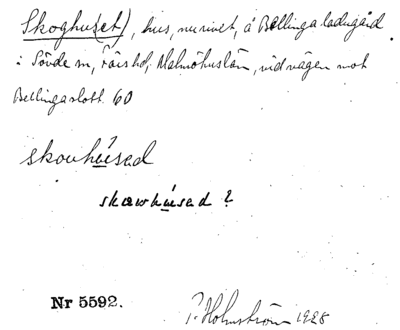 Skoghuset), hus, nu rivet, å Bellinga ladugård
i Sövde sn, Färs hd, Malmöhus län, vid vägen mot
Bellinga slott. 60
skouhúsad
skæwhúsad ?
Nr 5592.
P. Holmström 1928